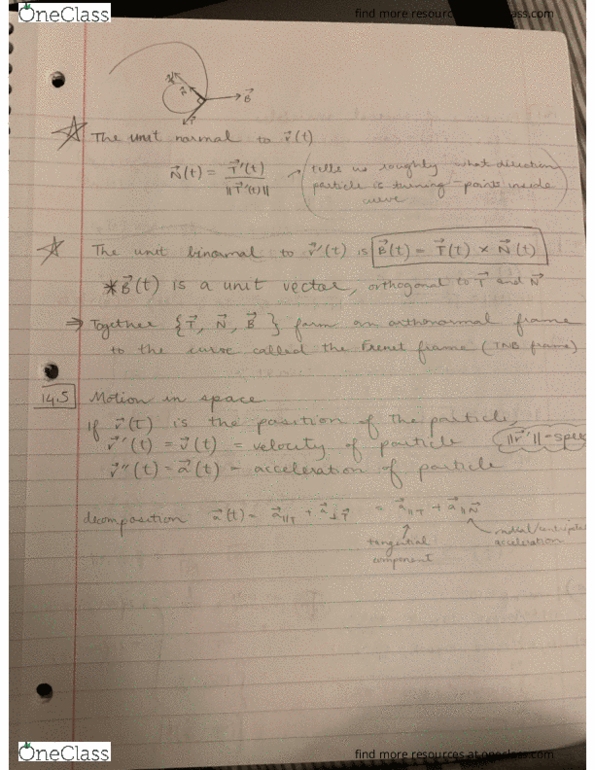 OneClass
find more resources at oneclass.com
N⃗
B⃗
T⃗
The unit normal to r⃗(t)
N⃗(t) = T⃗'(t) / ||T⃗'(t)||
tells us roughly what direction
particle is turning - points inside
curve
The unit binormal to r⃗(t) is B⃗(t) = T⃗(t) × N⃗(t)
*B⃗(t) is a unit vector, orthogonal to T⃗ and N⃗
⇒ Together {T⃗, N⃗, B⃗} form an orthonormal frame
to the curve called the Frenet frame (TNB frame)
14.5 Motion in space
If r⃗(t) is the position of the particle,
r⃗'(t) = v⃗(t) = velocity of particle ||r⃗'|| = spee
r⃗''(t) = a⃗(t) = acceleration of particle
decomposition a⃗(t) = a⃗∥T + a⃗⊥T⃗ = a⃗∥T + a⃗∥N⃗
tangential
component
radial/centripetal
acceleration
OneClass
find more resources at oneclass.com